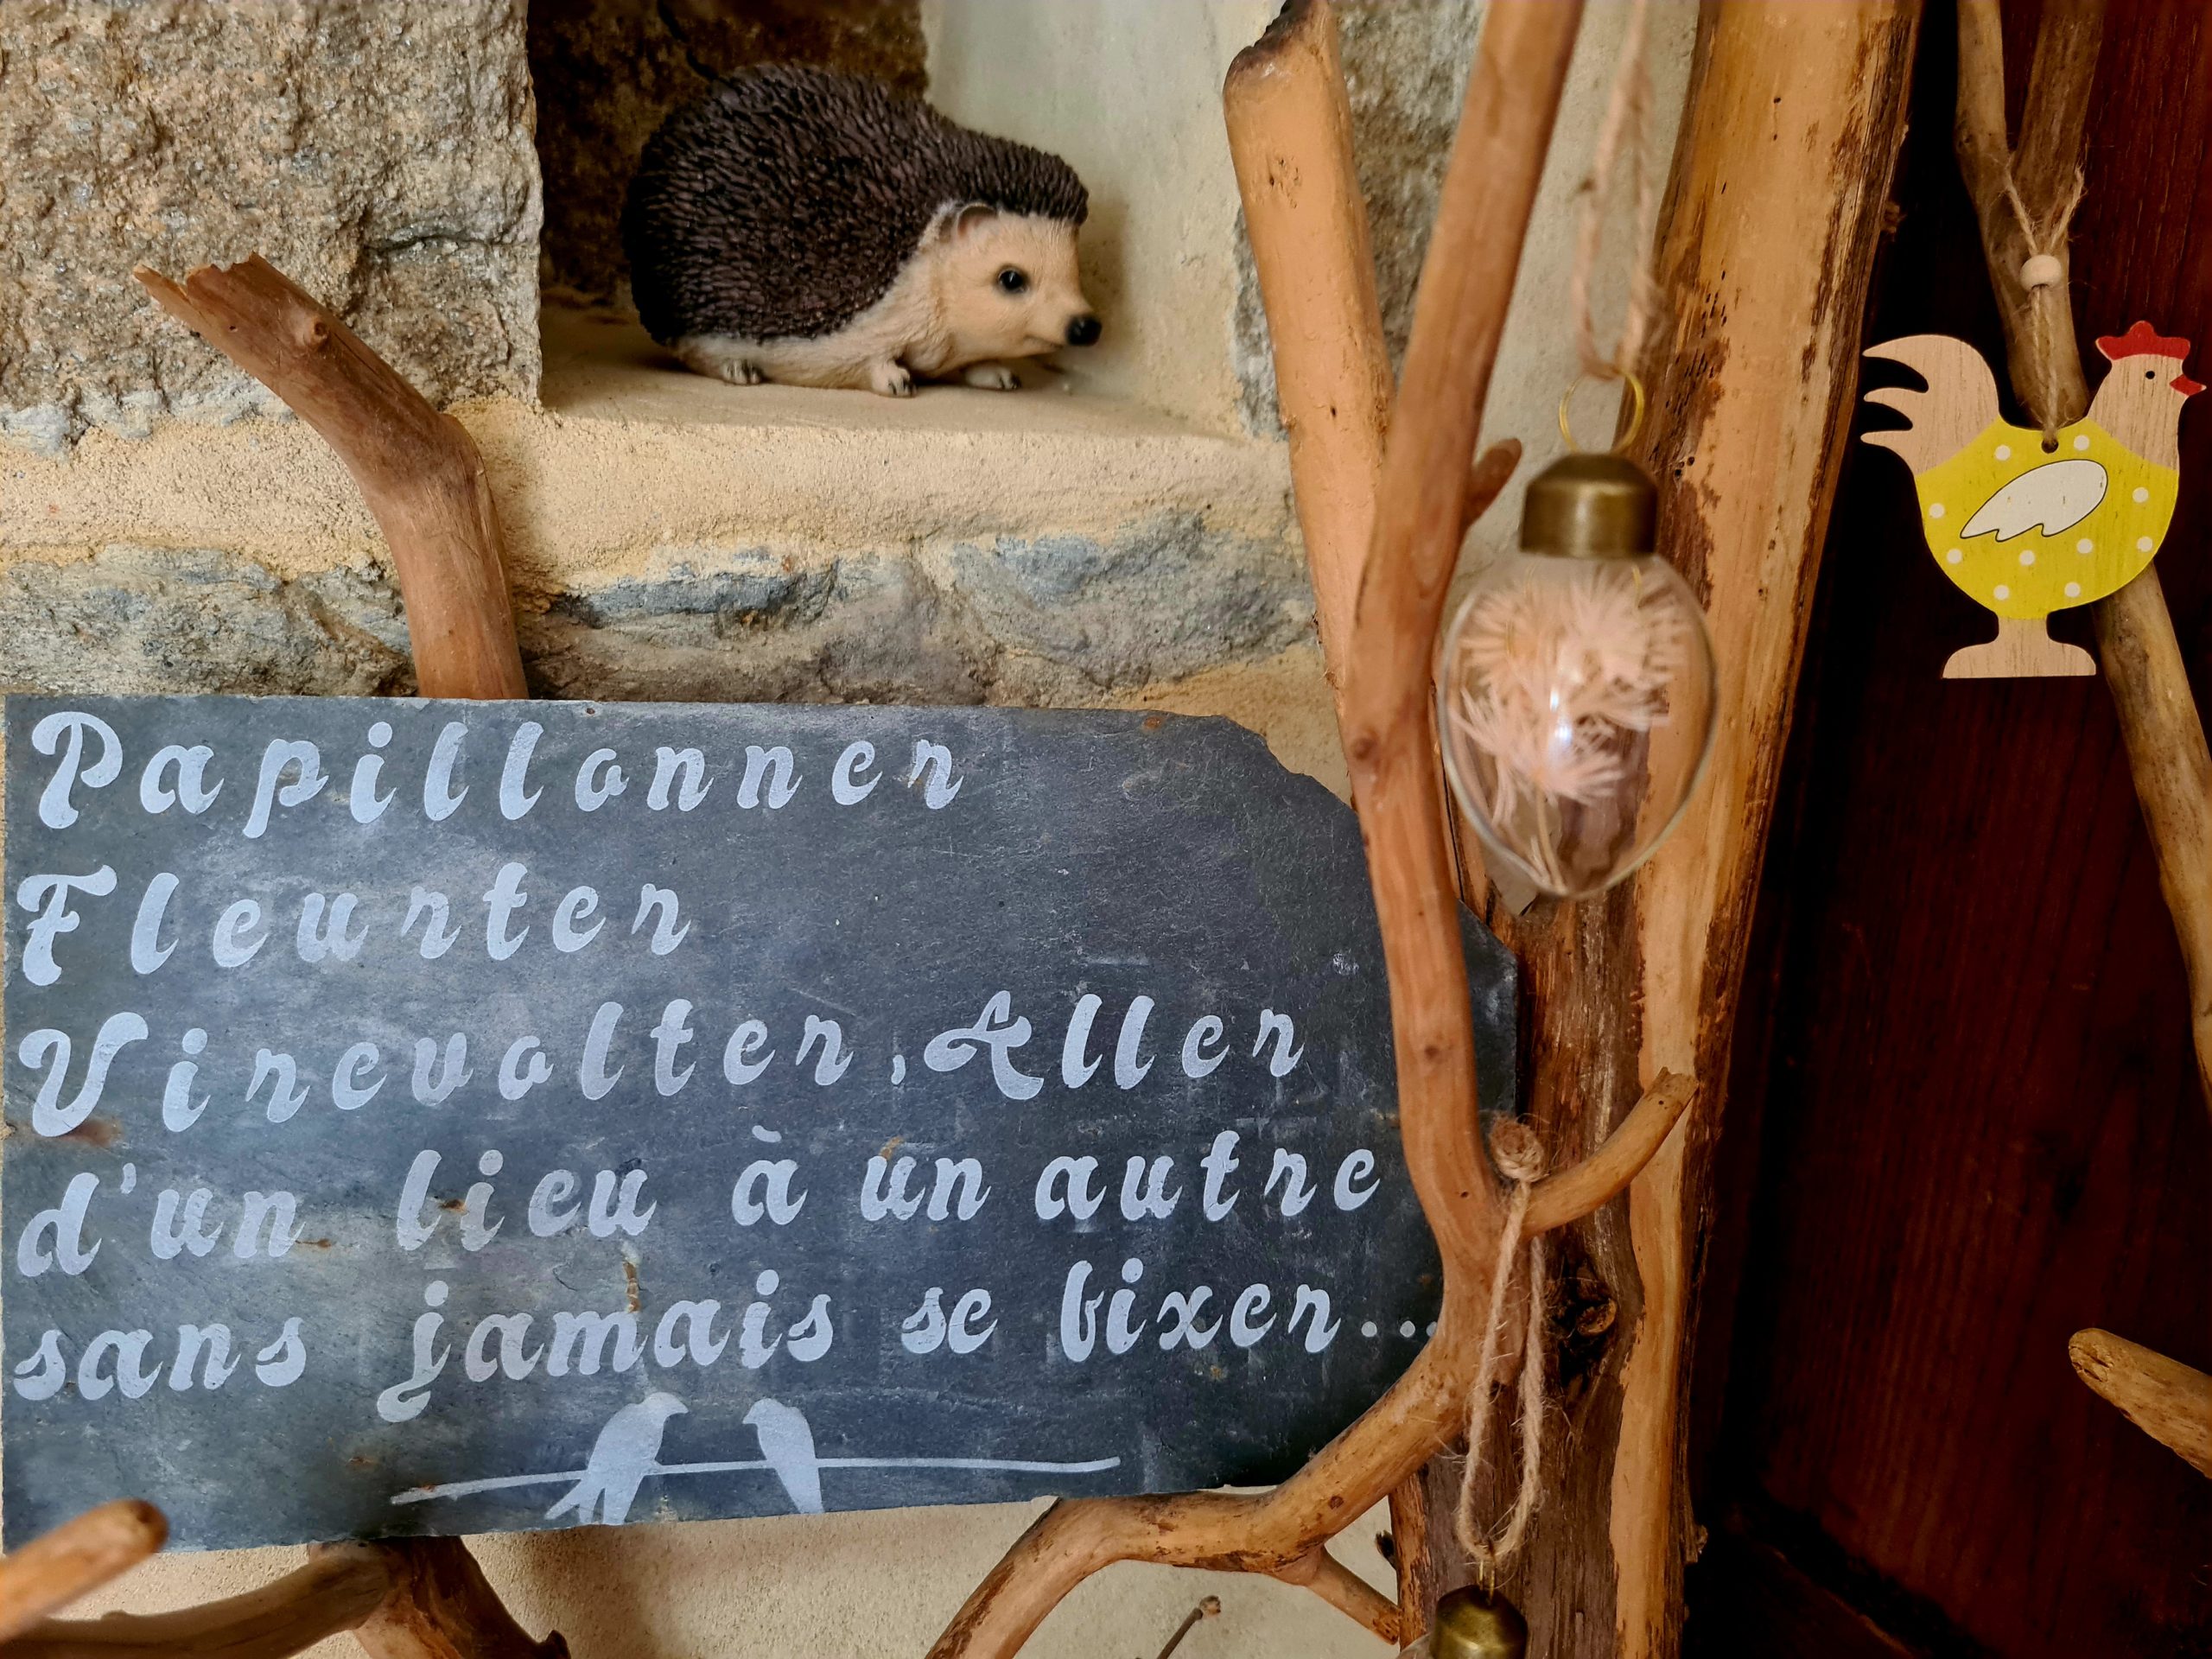 Papillonner
Fleurter
Virevolter, Aller
d'un lieu à un autre
sans jamais se fixer...